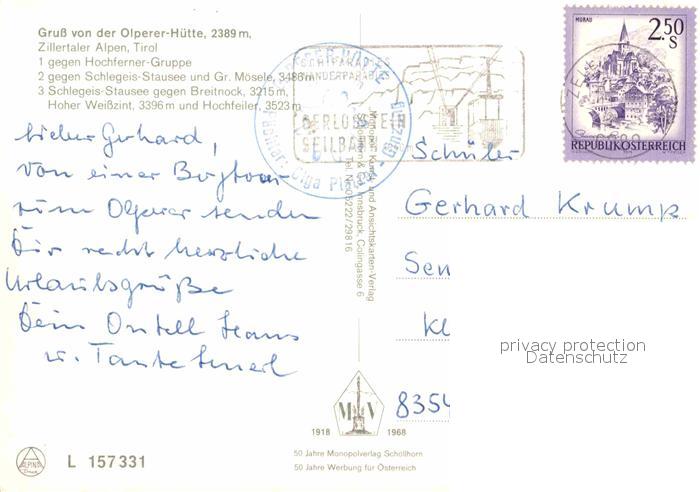 Gruß von der Olperer-Hütte, 2389 m,
Zillertaler Alpen, Tirol
1 gegen Hochferner-Gruppe
2 gegen Schlegeis-Stausee und Gr. Mösele, 3486 m
3 Schlegeis-Stausee gegen Breitnock, 3215 m,
Hoher Weißzint, 3396 m und Hochfeiler, 3523 m
lieber Gerhard,
von einer Bergtour
zum Olperer senden
Dir recht herzliche
Urlaubsgrüße
Dein Onkell Hans
u. Tante
SCHIPARADIES
WANDERPARADIES
GERLOSSTEIN
SEILBAHN
MURAU
2.50
S
REPUBLIK ÖSTERREICH
Monopol, Kunst- und Ansichtskarten-Verlag
Innsbruck, Colingasse 6
Tel. 05222/29816
Schüler
Gerhard Krump
Sen
Kl
8354
privacy protection
Datenschutz
M V
1918 1968
50 Jahre Monopolverlag Schöllhorn
50 Jahre Werbung für Österreich
ALPINA
Druck
L 157331